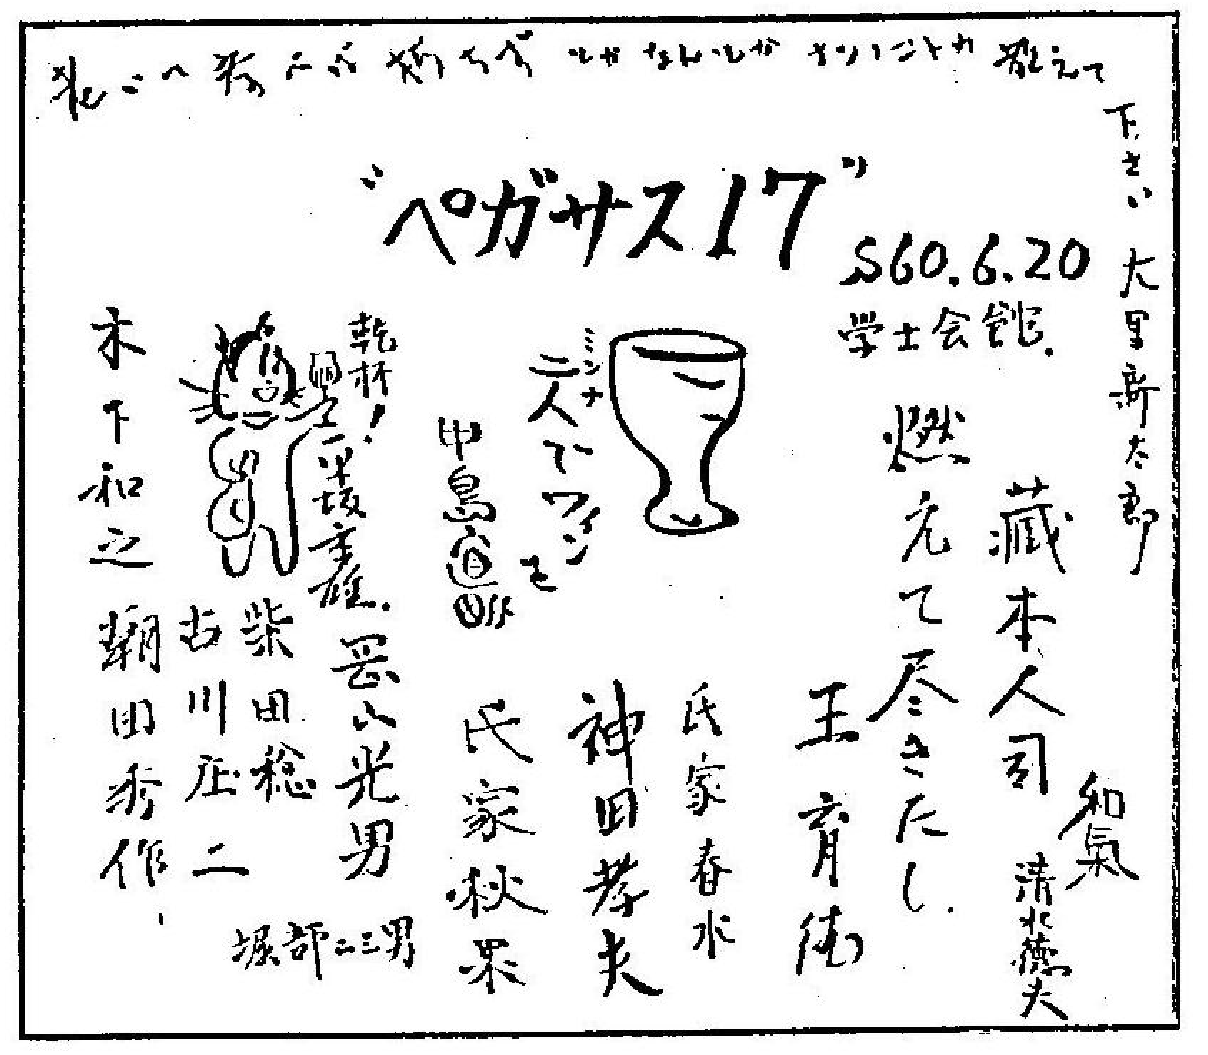 教えて
下さい 大里新太郎
"ペガサス17"
S60.6.20
学士会館.
燃えて尽きたし.
蔵本人司
和氣
清水徳夫
王育徳
氏家春水
神田孝夫
氏家秋果
ミンナ
二人でワインを
中島宣
乾杯!
岡山光男
柴田稔
古川庄二
木下和之
朝田秀作
堀部二三男